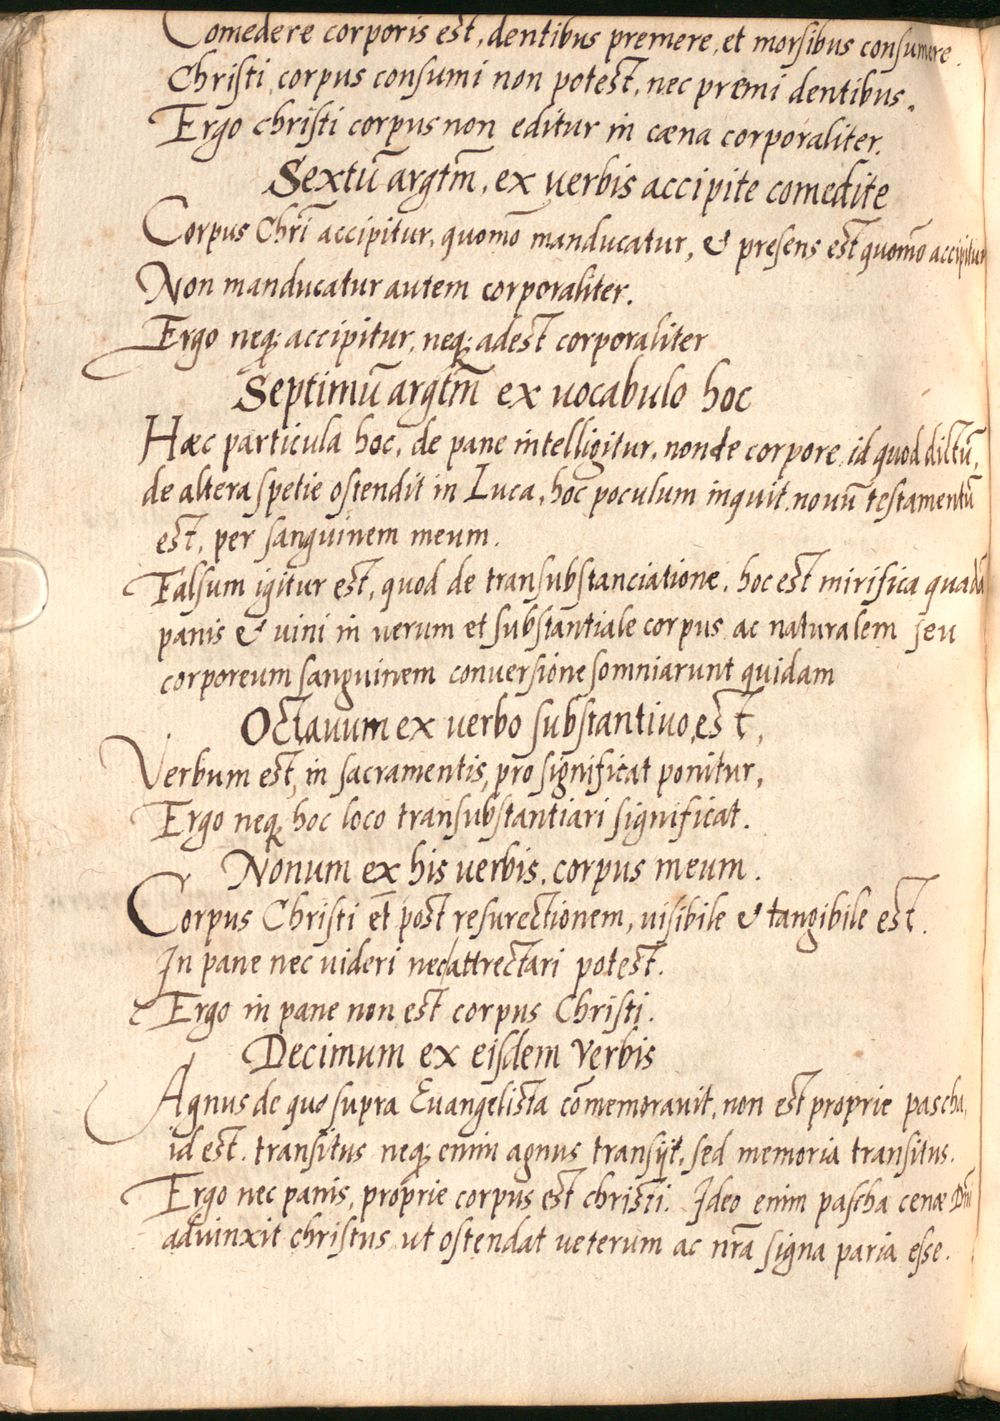 Comedere corporis est, dentibus premere, et morsibus consumere.
Christi corpus consumi non potest, nec premi dentibus.
Ergo christi corpus non editur in cæna corporaliter.
Sextū argtm̄, ex verbis accipite comedite
Corpus Chrī accipitur, quomō manducatur, & presens est quomō accipitur
Non manducatur autem corporaliter.
Ergo neq; accipitur, neq; adest corporaliter
Septimū argtm̄ ex vocabulo hoc
Hæc particula hoc, de pane intelligitur, non de corpore, id quod dictū,
de altera spetie ostendit in Luca, hoc poculum inquit novū testamentū
est, per sanguinem meum.
Falsum igitur est, quod de transubstanciatione, hoc est mirifica quadā
panis & vini in verum et substantiale corpus ac naturalem seu
corporeum sanguinem conversione somniarunt quidam
Octavum ex verbo substantivo, est,
Verbum est, in sacramentis, pro significat ponitur,
Ergo neq; hoc loco transubstantiari significat.
Nonum ex his verbis, corpus meum.
Corpus Christi et post resurectionem, visibile & tangibile est.
In pane nec videri nec attrectari potest.
Ergo in pane non est corpus Christi.
Decimum ex eisdem verbis
Agnus de quo supra Evangelista cōmemoravit, non est proprie pascha,
id est. transitus neq; enim agnus transijt, sed memoria transitus.
Ergo nec panis, proprie corpus est christi. Ideo enim pascha cenæ Dnī
advinxit christus ut ostendat veterum ac nrā signa paria esse.